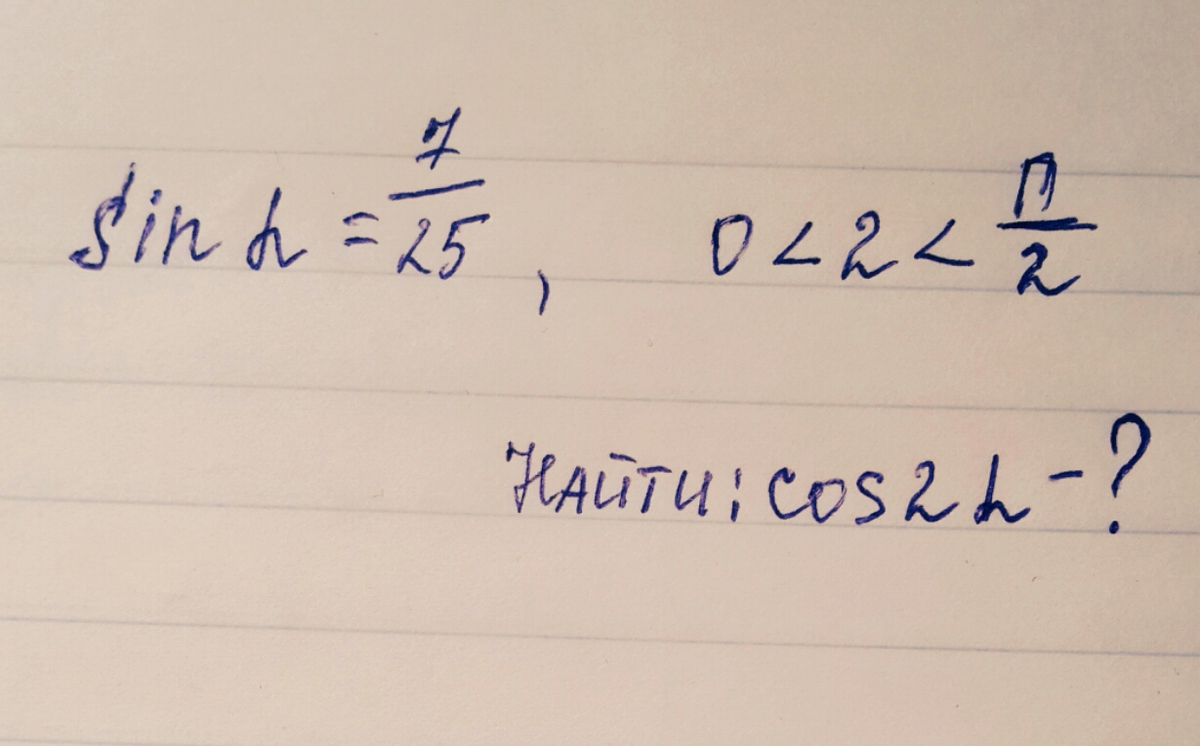 sin h = 7/25, 0 < 2 < П/2
НАЙТИ: cos 2 h - ?